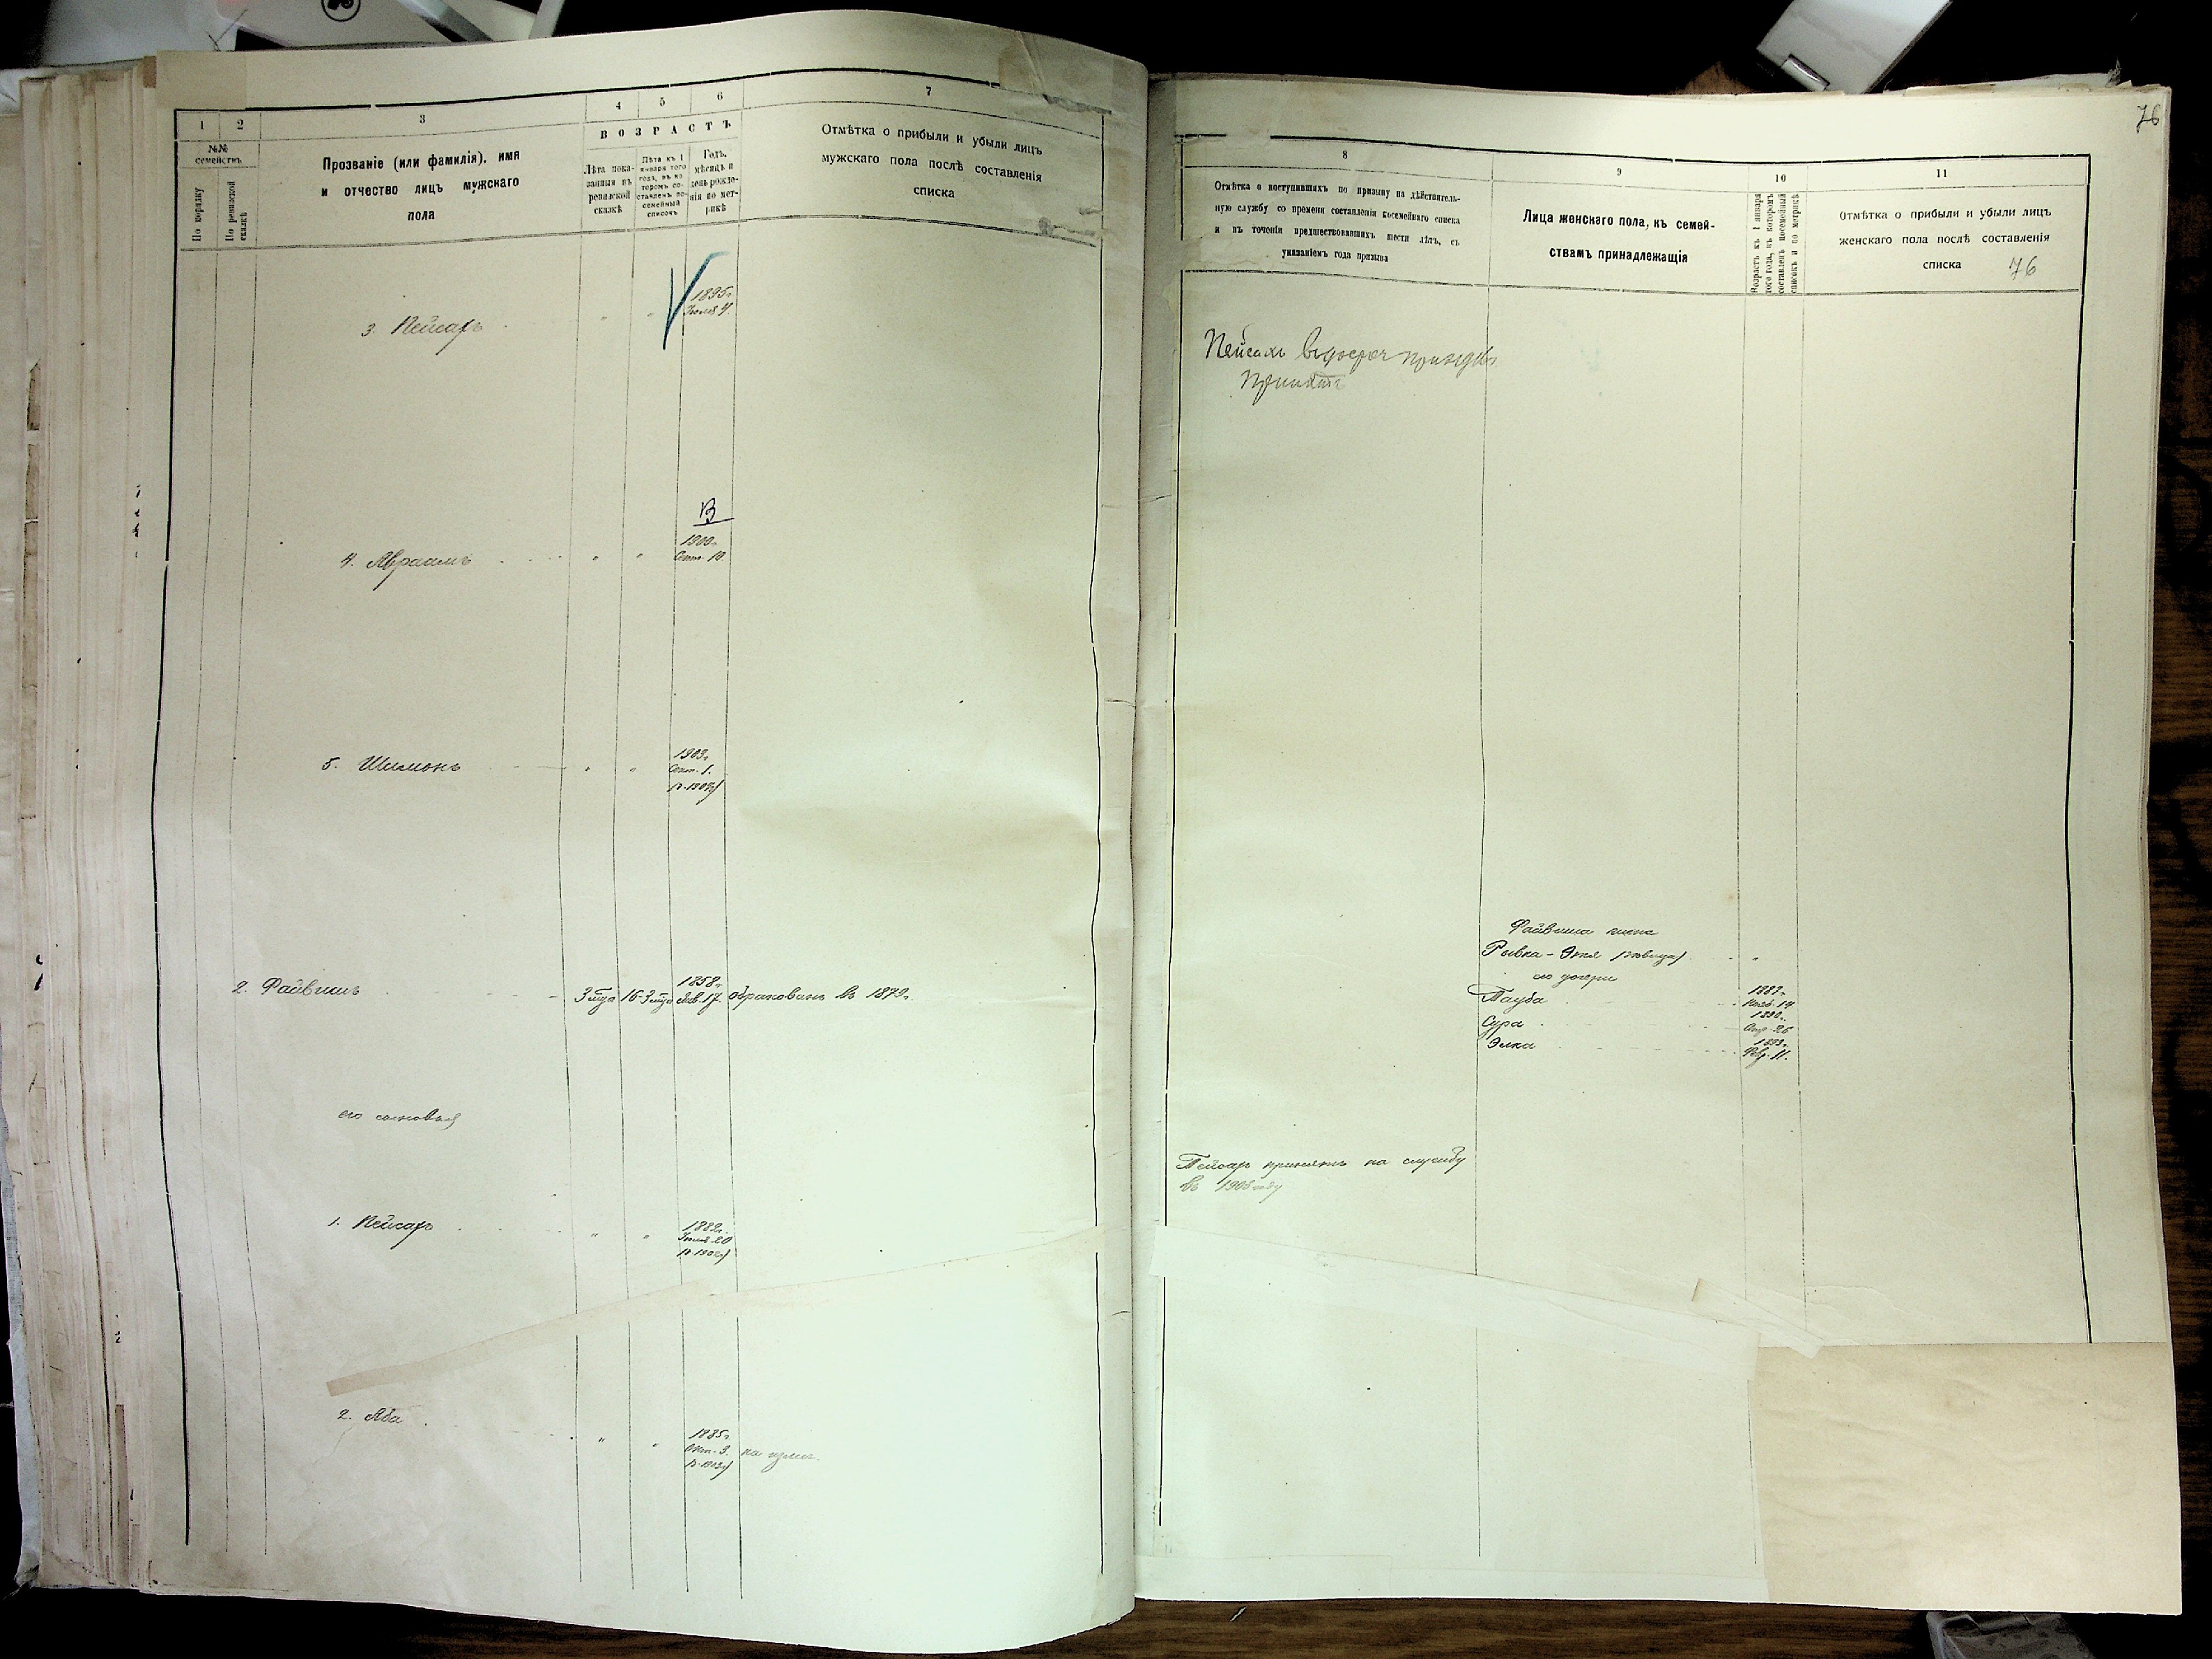 76
1
2
3
4
5
6
7
№№ семействъ
По порядку
По ревизской сказкѣ
Прозваніе (или фамилія), имя
и отчество лицъ мужскаго
пола
ВОЗРАСТЪ
Лѣта пока-
занныя въ
ревизской
сказкѣ
Лѣта къ 1
января того
года, въ ко-
торомъ со-
ставленъ по-
семейный
списокъ
Годъ,
мѣсяцъ и
день рожде-
нія по мет-
рикѣ
Отмѣтка о прибыли и убыли лицъ
мужскаго пола послѣ составленія
списка
3. Пейсахъ
1895г.
Іюля 4.
В
4. Авраамъ
1900г.
Сент. 10.
5. Шимонъ
1903г.
Сент. 1.
2. Файвишъ
3 ½ года
16-3 ½ года
1858г.
17.
обракованъ въ 1879г.
его сыновья
1. Пейсахъ
1882г.
Іюля 20
2. Аба
1885г.
Окт. 3.
8
9
10
11
Отмѣтка о поступившихъ по призыву на дѣйствитель-
ную службу со времени составленія посемейнаго списка
и въ теченіи предшествовавшихъ шести лѣтъ, съ
указаніемъ года призыва
Лица женскаго пола, къ семей-
ствамъ принадлежащія
Возрастъ къ 1 января
того года, въ которомъ
составленъ посемейный
списокъ и по метрикѣ
Отмѣтка о прибыли и убыли лицъ
женскаго пола послѣ составленія
списка
76
Пейсахъ
принятъ
Файвиша жена
Рывка-
его дочери
Тауба
Нояб. 14
Сура
1890г.
Апр. 26
Элка
1893г.
Фев. 11.
Пейсахъ принятъ на службу
въ 1903 году